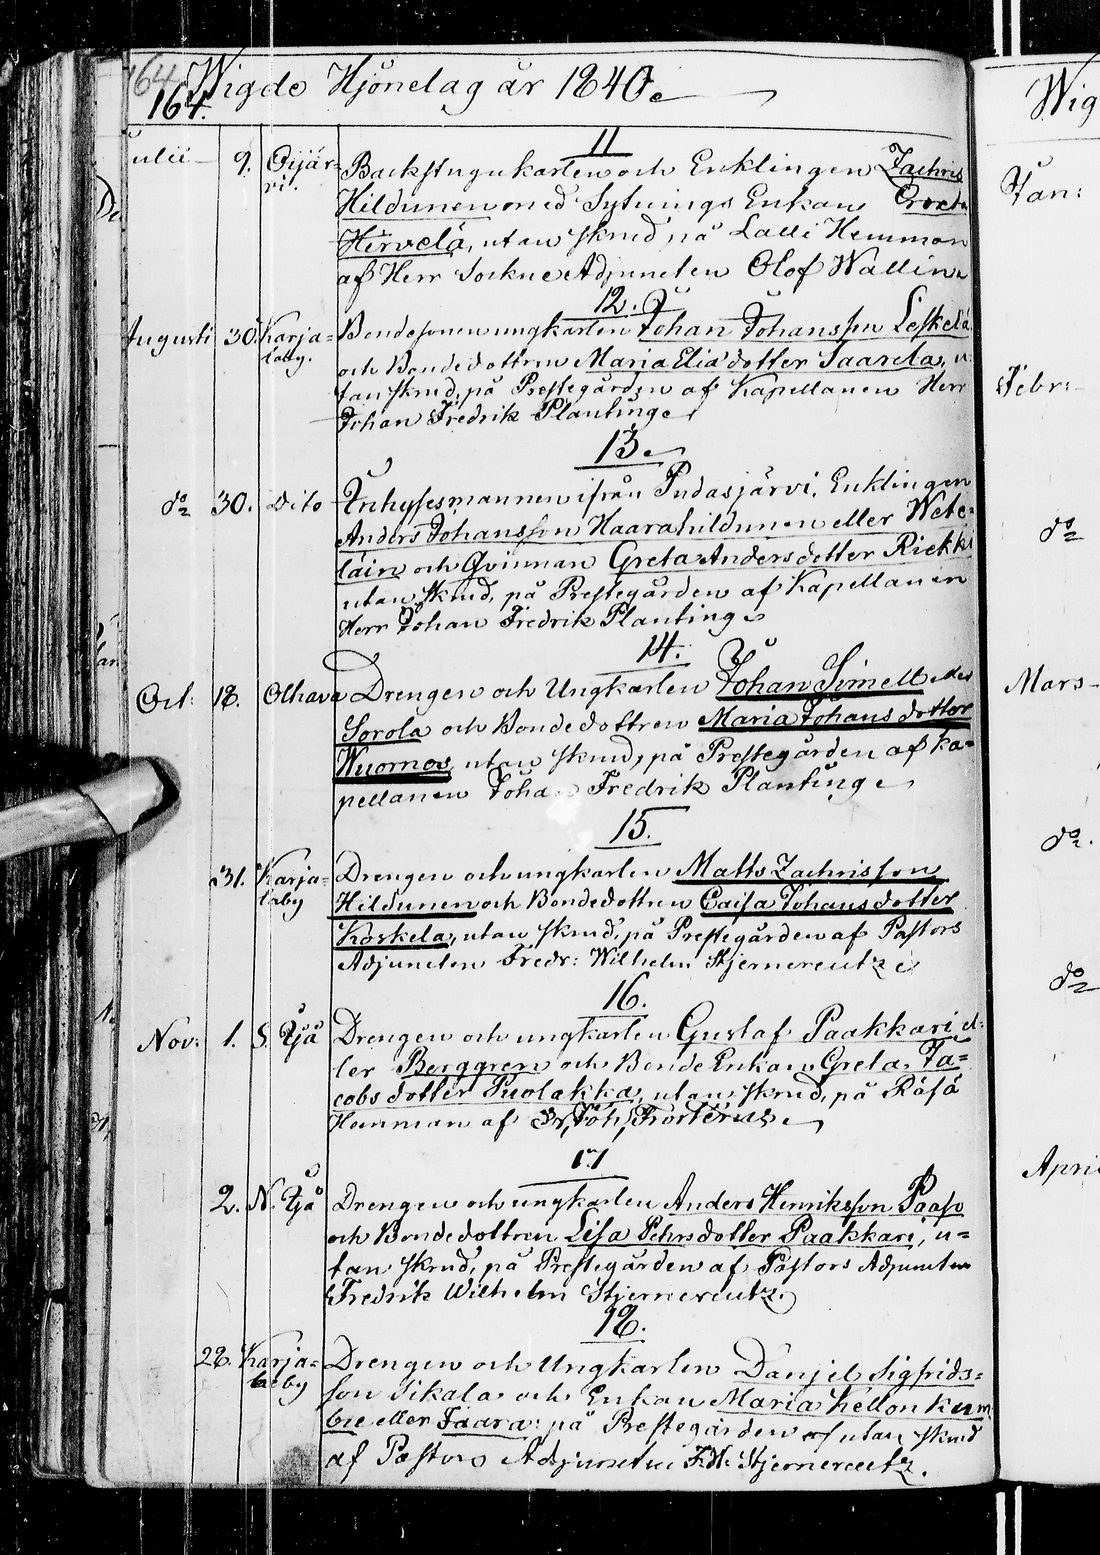 164
Wigde Hjonelag år 1840.
164.
11
Julii 9. Oijär-
vi.
Backstugukarlen och Enklingen Zachris
Hildunen med Sytnings Enkan Greta
Hervelä, utan skrud, på Lalli Hemman
af Herr Sockne Adjuncten Olof Wallin.
12.
Augusti 30. Karja-
laby.
Bondesonen ungkarlen Johan Johansson Leskelä
och Bondedottren Maria Eliædotter Saarela, u-
tan skrud, på Prestegården af Kapellanen Herr
Johan Fredrik Planting.
13.
do 30. Dito
Inhysesmannen ifrån Pudasjärvi, Enklingen
Anders Johansson Haarahildunen eller Wete-
läin och Qvinnan Greta Andersdotter Riekki
utan skrud, på Prestegården af Kapellanen
Herr Johan Fredrik Planting.
14.
Oct: 18. Olhava
Drengen och Ungkarlen Johan Simell
Sorola och Bondedottren Maria Johansdotter
Wuornos, utan skrud, på Prestegården af Ka-
pellanen Johan Fredrik Planting.
15.
31. Karja-
laby
Drengen och ungkarlen Matts Zachrisson
Hildunen och Bondedottren Caisa Johansdotter
Koskela, utan skrud, på Prestegården af Pastors
Adjuncten Fredr: Wilhelm Stjerncreutz.
16.
Nov: 1. S. Ijå
Drengen och ungkarlen Gustaf Paakkari el-
ler Berggren och Bonde Enkan Greta Ja-
cobsdotter Puolakka, utan skrud, på Räsä
Hemman af Joh. Frosterus.
17
2. N. Ijå
Drengen och ungkarlen Anders Henriksson Paaso
och Bondedottren Lisa Pehrsdotter Paakkari, u-
tan skrud, på Prestegården af Pastors Adjuncten
Fredrik Wilhelm Stjerncreutz.
18.
28. Karja-
laby
Drengen och Ungkarlen Danjel Sigfrids-
son Sikala och Enkan Maria Kellonkum-
bu eller Jaara på Prestegården utan skrud
af Pastors Adjuncten F.W. Stjerncreutz.
Wig
Jan:
Febr:
do
Mars
do.
do
Apri